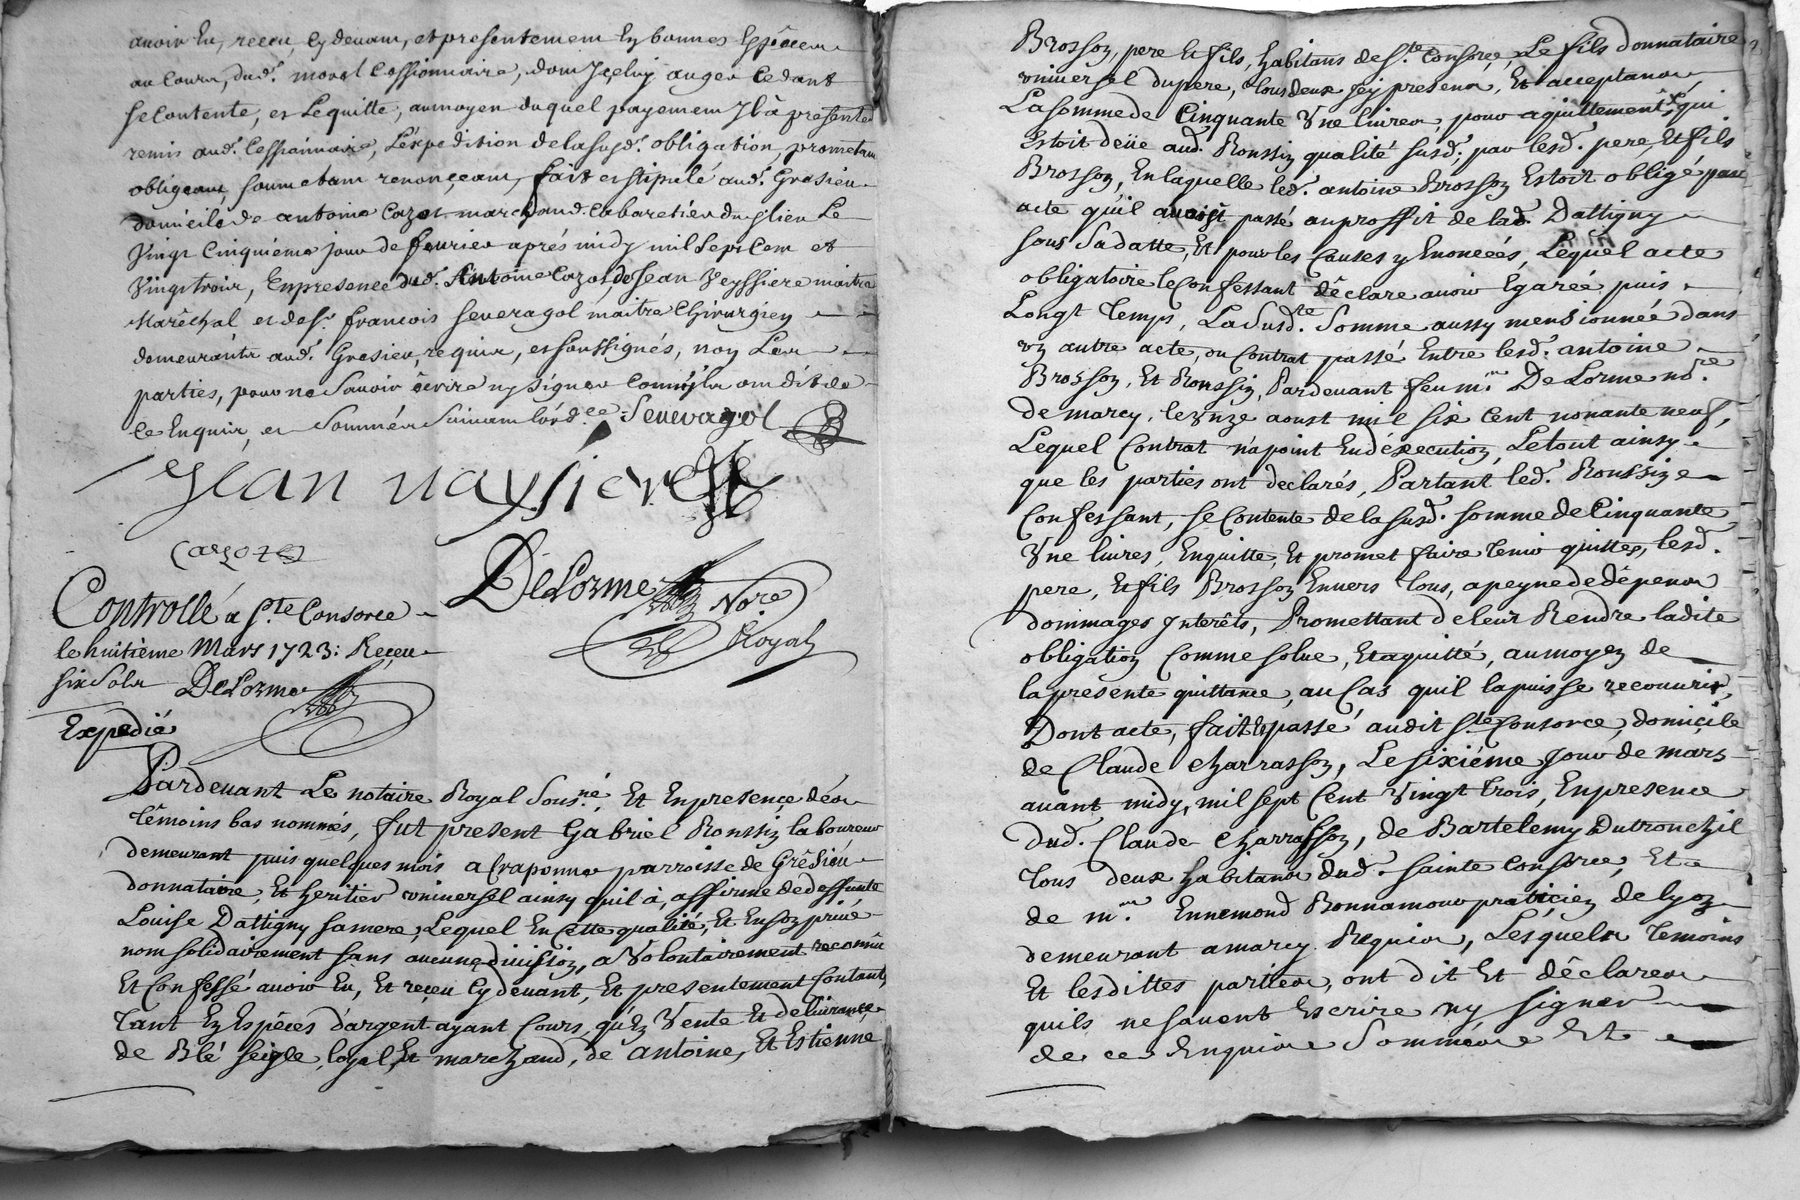 avoir Eu, receu, Cydevant, et presentement En bonnes Espèces
au Cours, dud. morel Cessionnaire, dont Iceluy auger Cedant
se Contente, et Lequitte, au moyen duquel payement Il à presentem
remis aud. Cessionnaire, L'expedition de la susd. obligation, promettant
obligeant, soumettant renonçeant, fait et stipulé aud. Gresieu
domicile de antoine Cazot marchand Cabaretier du d. lieu Le
Vingt Cinquiéme jour de fevrier aprés midy mil Sept Cent et
Vingt trois, En presence dud. Antoine Cazot, de Jean Veyssiere maitre
Marêchal et de sr. francois Severagol maitre Chirurgien
demeurants aud. Gresieu, requis, et soussignés, non Les
parties, pour ne savoir écrire ny signer Comm'elles ont dit de
Ce Enquis, et Sommées Suivant l'ord.ce Severagol
Jean vaysiere
Cazot
DeLorme Nore.
Royal
Controllé a Ste Consorce
le huitiéme Mars 1723: Reçeu
six Sols DeLorme
Expedié
Pardevant Le notaire Royal Sous.né Et En presence des
têmoins bas nommés, fut present Gabriel Roussin laboureur
demeurant puis quelques mois a Craponne parroisse de Grêsieu
donnataire, Et heritier universel ainsy quil à, affirmé de deffunte
Louise Dattigny sa mere, Lequel En Cette qualité, Et En son privé
nom solidairement sans aucune division, a Volontairement reconnû
Et Confessé avoir Eu, Et reçeu Cy devant, Et presentement Contant,
tant En Espèces d'argent ayant Cours, qu'En Vente Et delivrance
de Blé seigle, loyal, Et marchand, de antoine, Et Estienne
Brosson, pere Et fils, habitans de Ste. Consorce, Le fils donnataire
universel du pere, tous deux Icy presens, Et acceptans
La somme de Cinquante Vne livres, pour aquittement, qui
Estoit deüe aud. Roussin qualité susd. par lesd. pere, Et fils
Brosson, En laquelle led. antoine Brosson Estoit obligé par
acte qu'il avoit passé au proffit de lad. Dattigny
sous Sa datte, Et pour les Causes y Enoncées, Lequel acte
obligatoire le Confessant dêclare avoir Egarée puis
Longt temps, La Susd.te Somme aussy mensionnée dans
vn autre acte, ou Contrat passé Entre lesd. antoine
Brosson, Et Roussin, Pardevant feu me. DeLorme nore
de marcy, le Vnze aoust mil six Cent nonante neuf,
Lequel Contrat n'a point Eu d'éxecution, Le tout ainsy
que les parties ont declarés, Partant led. Roussin
Confessant, se Contente de la susd. somme de Cinquante
Vne livres, Enquitte, Et promet faire tenir quittes, lesd.
pere, Et fils Brosson Envers tous, a peyne de dêpens
dommages Interêts, Promettant de leur Rendre ladite
obligation Comme solue, Et aquitté, au moyen de
la presente quittance, au Cas quil la puisse recouvrir,
Dont acte, fait Et passé audit Ste Consorce, domiçile
de Claude Charrasson, Le sixiéme jour de mars
avant midy, mil sept Cent Vingt trois, En presence
dud. Claude Charrasson, de Bartelemy Dutronchil
tous deux habitans dud. sainte Consorce, Et
de me. Ennemond Bonnamour praticien de lyon
demeurant a marcy Requis, Lesquels temoins
Et lesdittes parties, ont dit Et dêclarer
quils ne savent Escrire ny signer
de ce Enquis Sommés Et